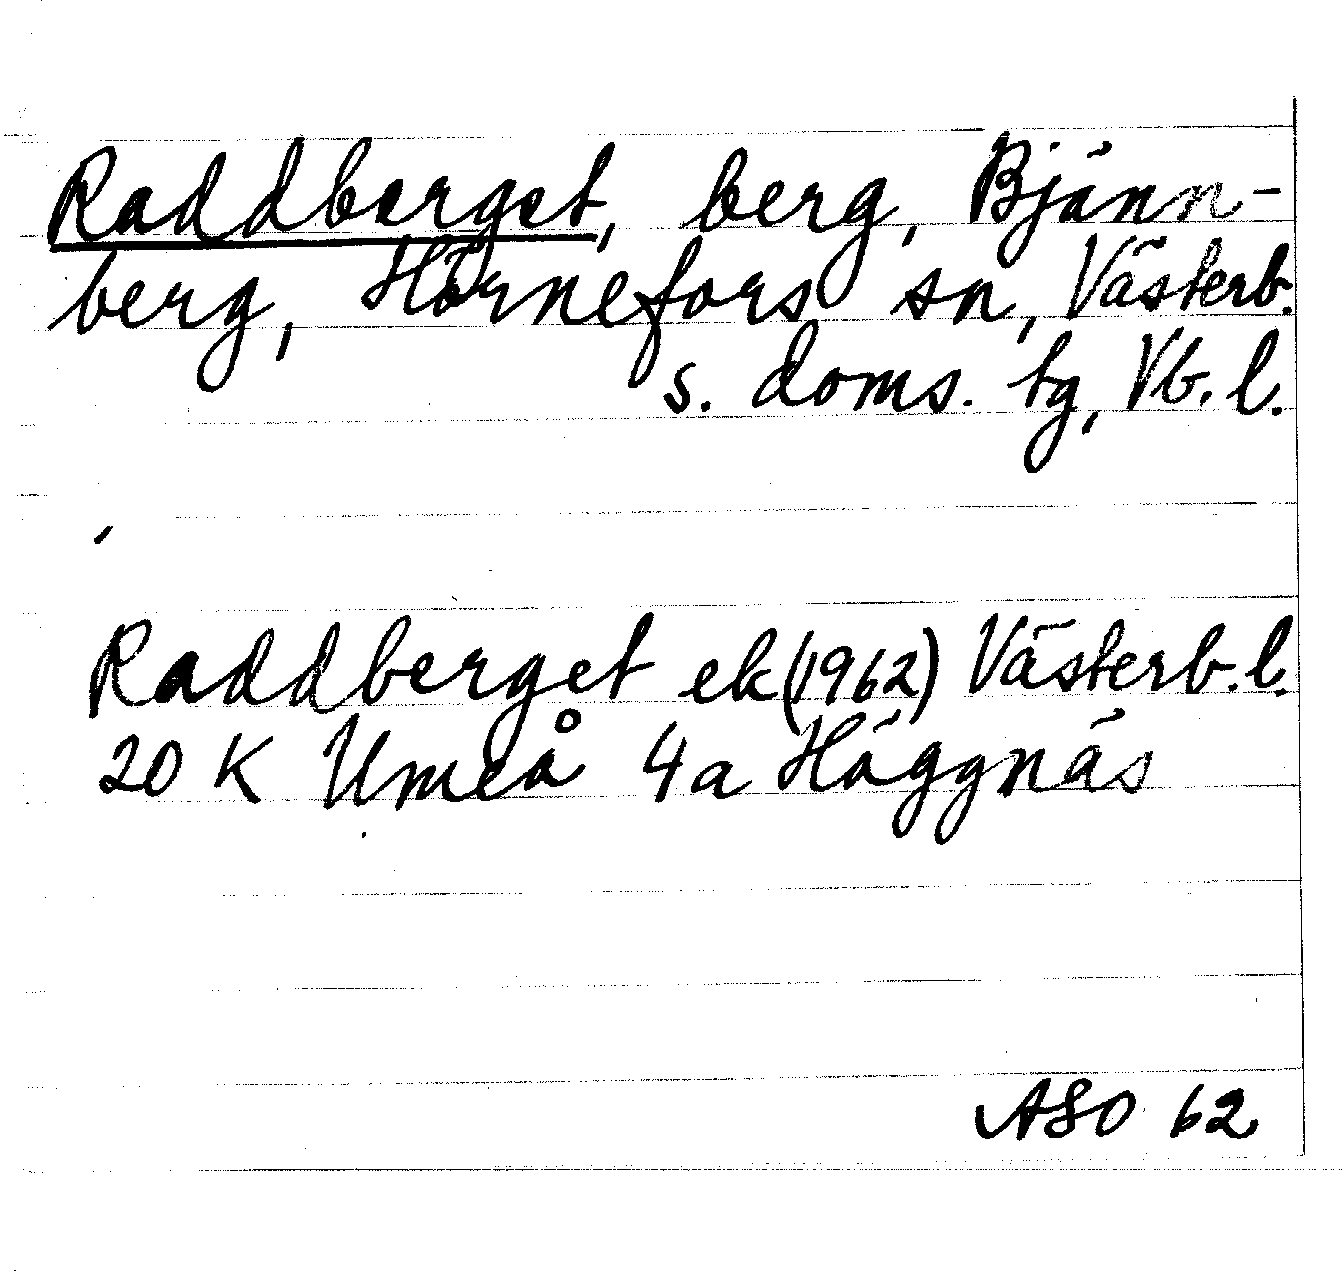 Raddberget, berg, Bjänn-
berg, Hörnefors sn, Västerb.
s. doms. tg, Vb. l.
Raddberget ek (1962) Västerb. l.
20 K Umeå 4a Häggnäs
ASO 62